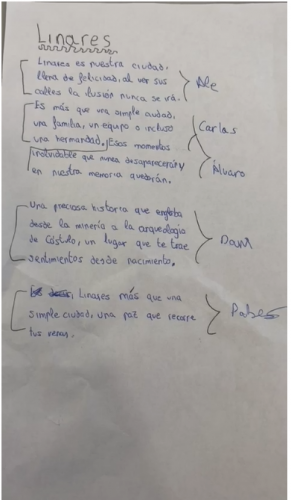 Linares
Linares es nuestra ciudad.
llena de felicidad, al ver sus
calles la ilusión nunca se irá.
Ale
Es más que una simple ciudad,
una familia, un equipo o incluso
una hermandad, Esos momentos
Carlos
inolvidable que nunca desaparecerán y
en nuestra memoria quedarán.
Álvaro
Una preciosa historia que engloba
desde la minería a la arqueología
de Cástulo, un lugar que te trae
sentimientos desde nacimiento.
Dani
Linares más que una
simple ciudad, una paz que recorre
tus venas.
Pablo